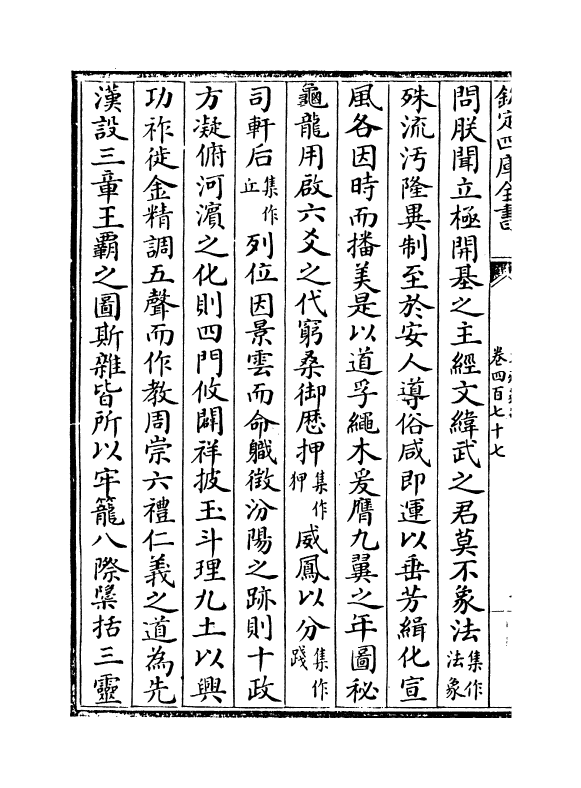 欽定四庫全書
卷四百七十七
問朕聞立極開基之主經文緯武之君莫不象法集作法象
殊流汚隆異制至於安人導俗咸即運以垂芳緝化宣
風各因時而播美是以道孚繩木爰膺九翼之年圖秘
龜龍用啟六爻之代窮桑御歴押集作狎威鳳以分集作踐
司軒后集作丘列位因景雲而命職徵汾陽之跡則十政
方凝俯河濱之化則四門攸闢祥披玉斗理九土以興
功祚徙金精調五聲而作教周崇六禮仁義之道為先
漢設三章王覇之圖斯雜皆所以牢籠八際檃括三靈